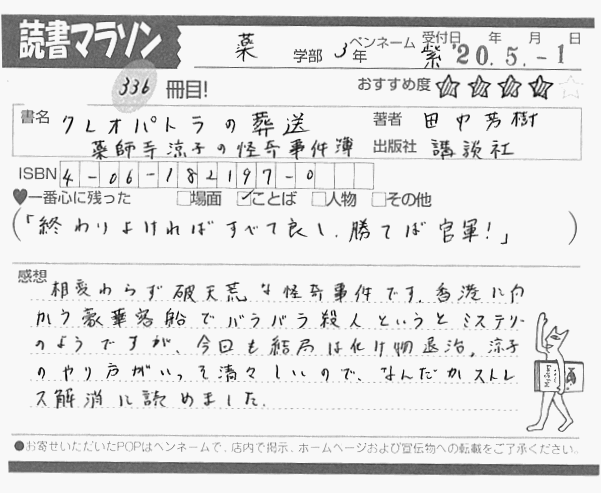 読書マラソン 薬 学部 3年 ペンネーム 紫 受付日 年 月 日 '20.5.-1
336 冊目! おすすめ度 ★★★★☆
書名 クレオパトラの葬送 著者 田中芳樹
薬師寺涼子の怪奇事件簿 出版社 講談社
ISBN 4-06-182197-0
♥一番心に残った □場面 ☑ことば □人物 □その他
(「終わりよければすべて良し、勝てば官軍!」)
感想 相変わらず破天荒な怪奇事件です。香港に向
かう豪華客船でバラバラ殺人というとミステリー
のようですが、今回も結局は化け物退治。涼子
のやり方がいっそ清々しいので、なんだかストレ
ス解消に読めました。
●お寄せいただいたPOPはペンネームで、店内で掲示、ホームページおよび宣伝物への転載をご了承ください。